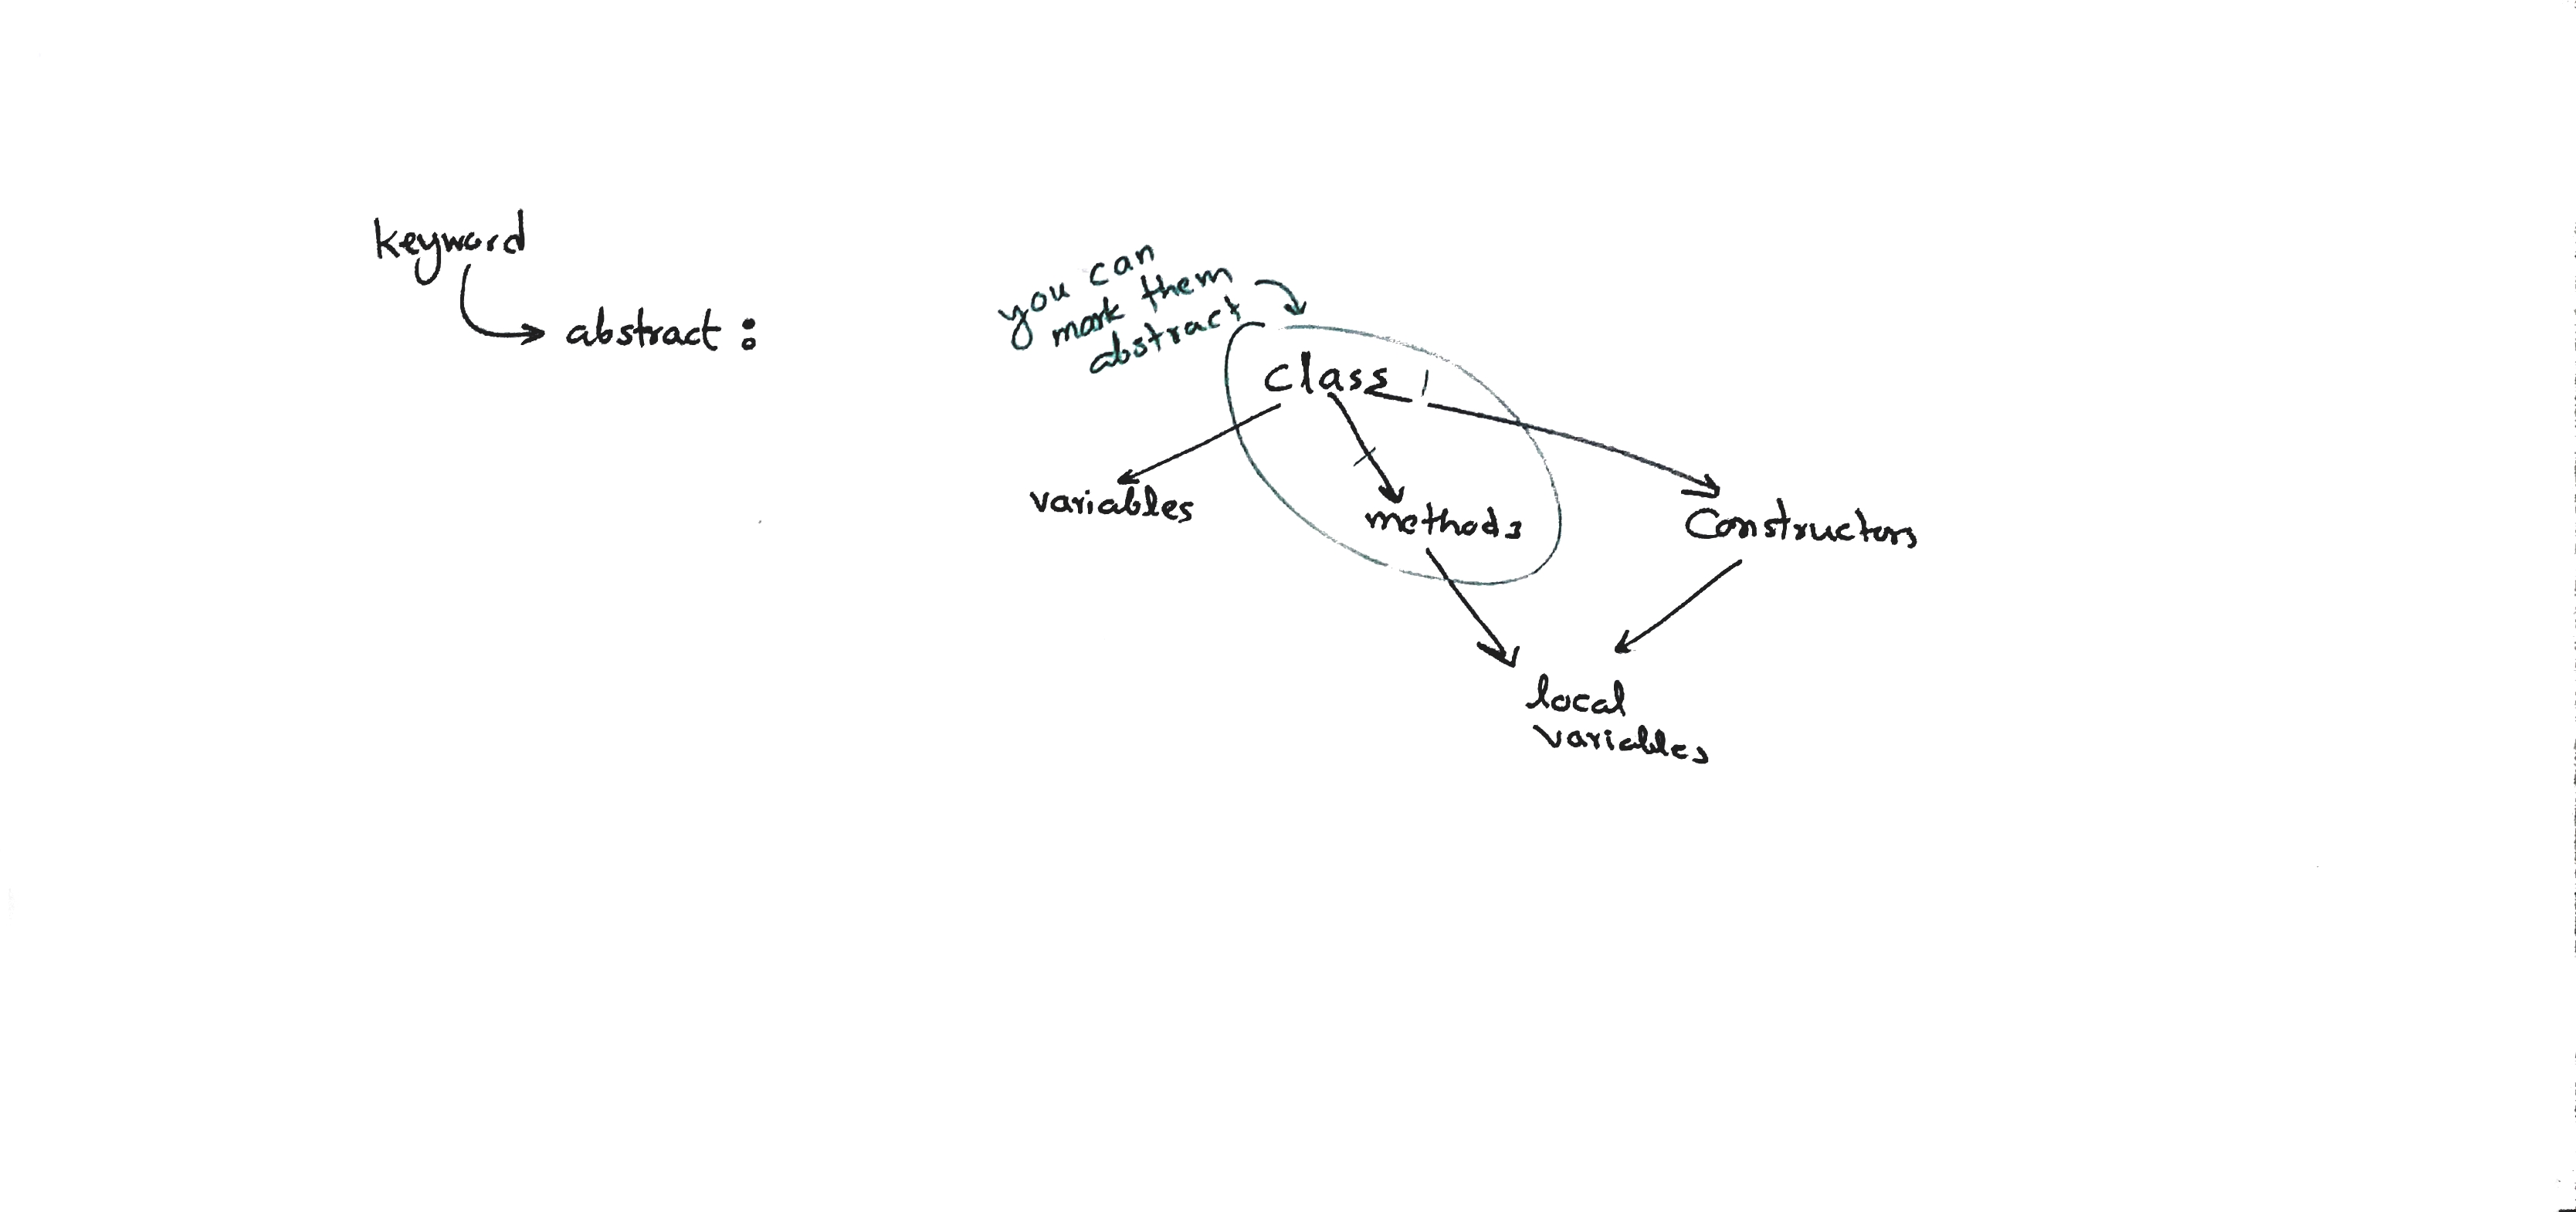 keyword
abstract :
you can
mark them
abstract
class
variables
methods
Constructors
local
variables